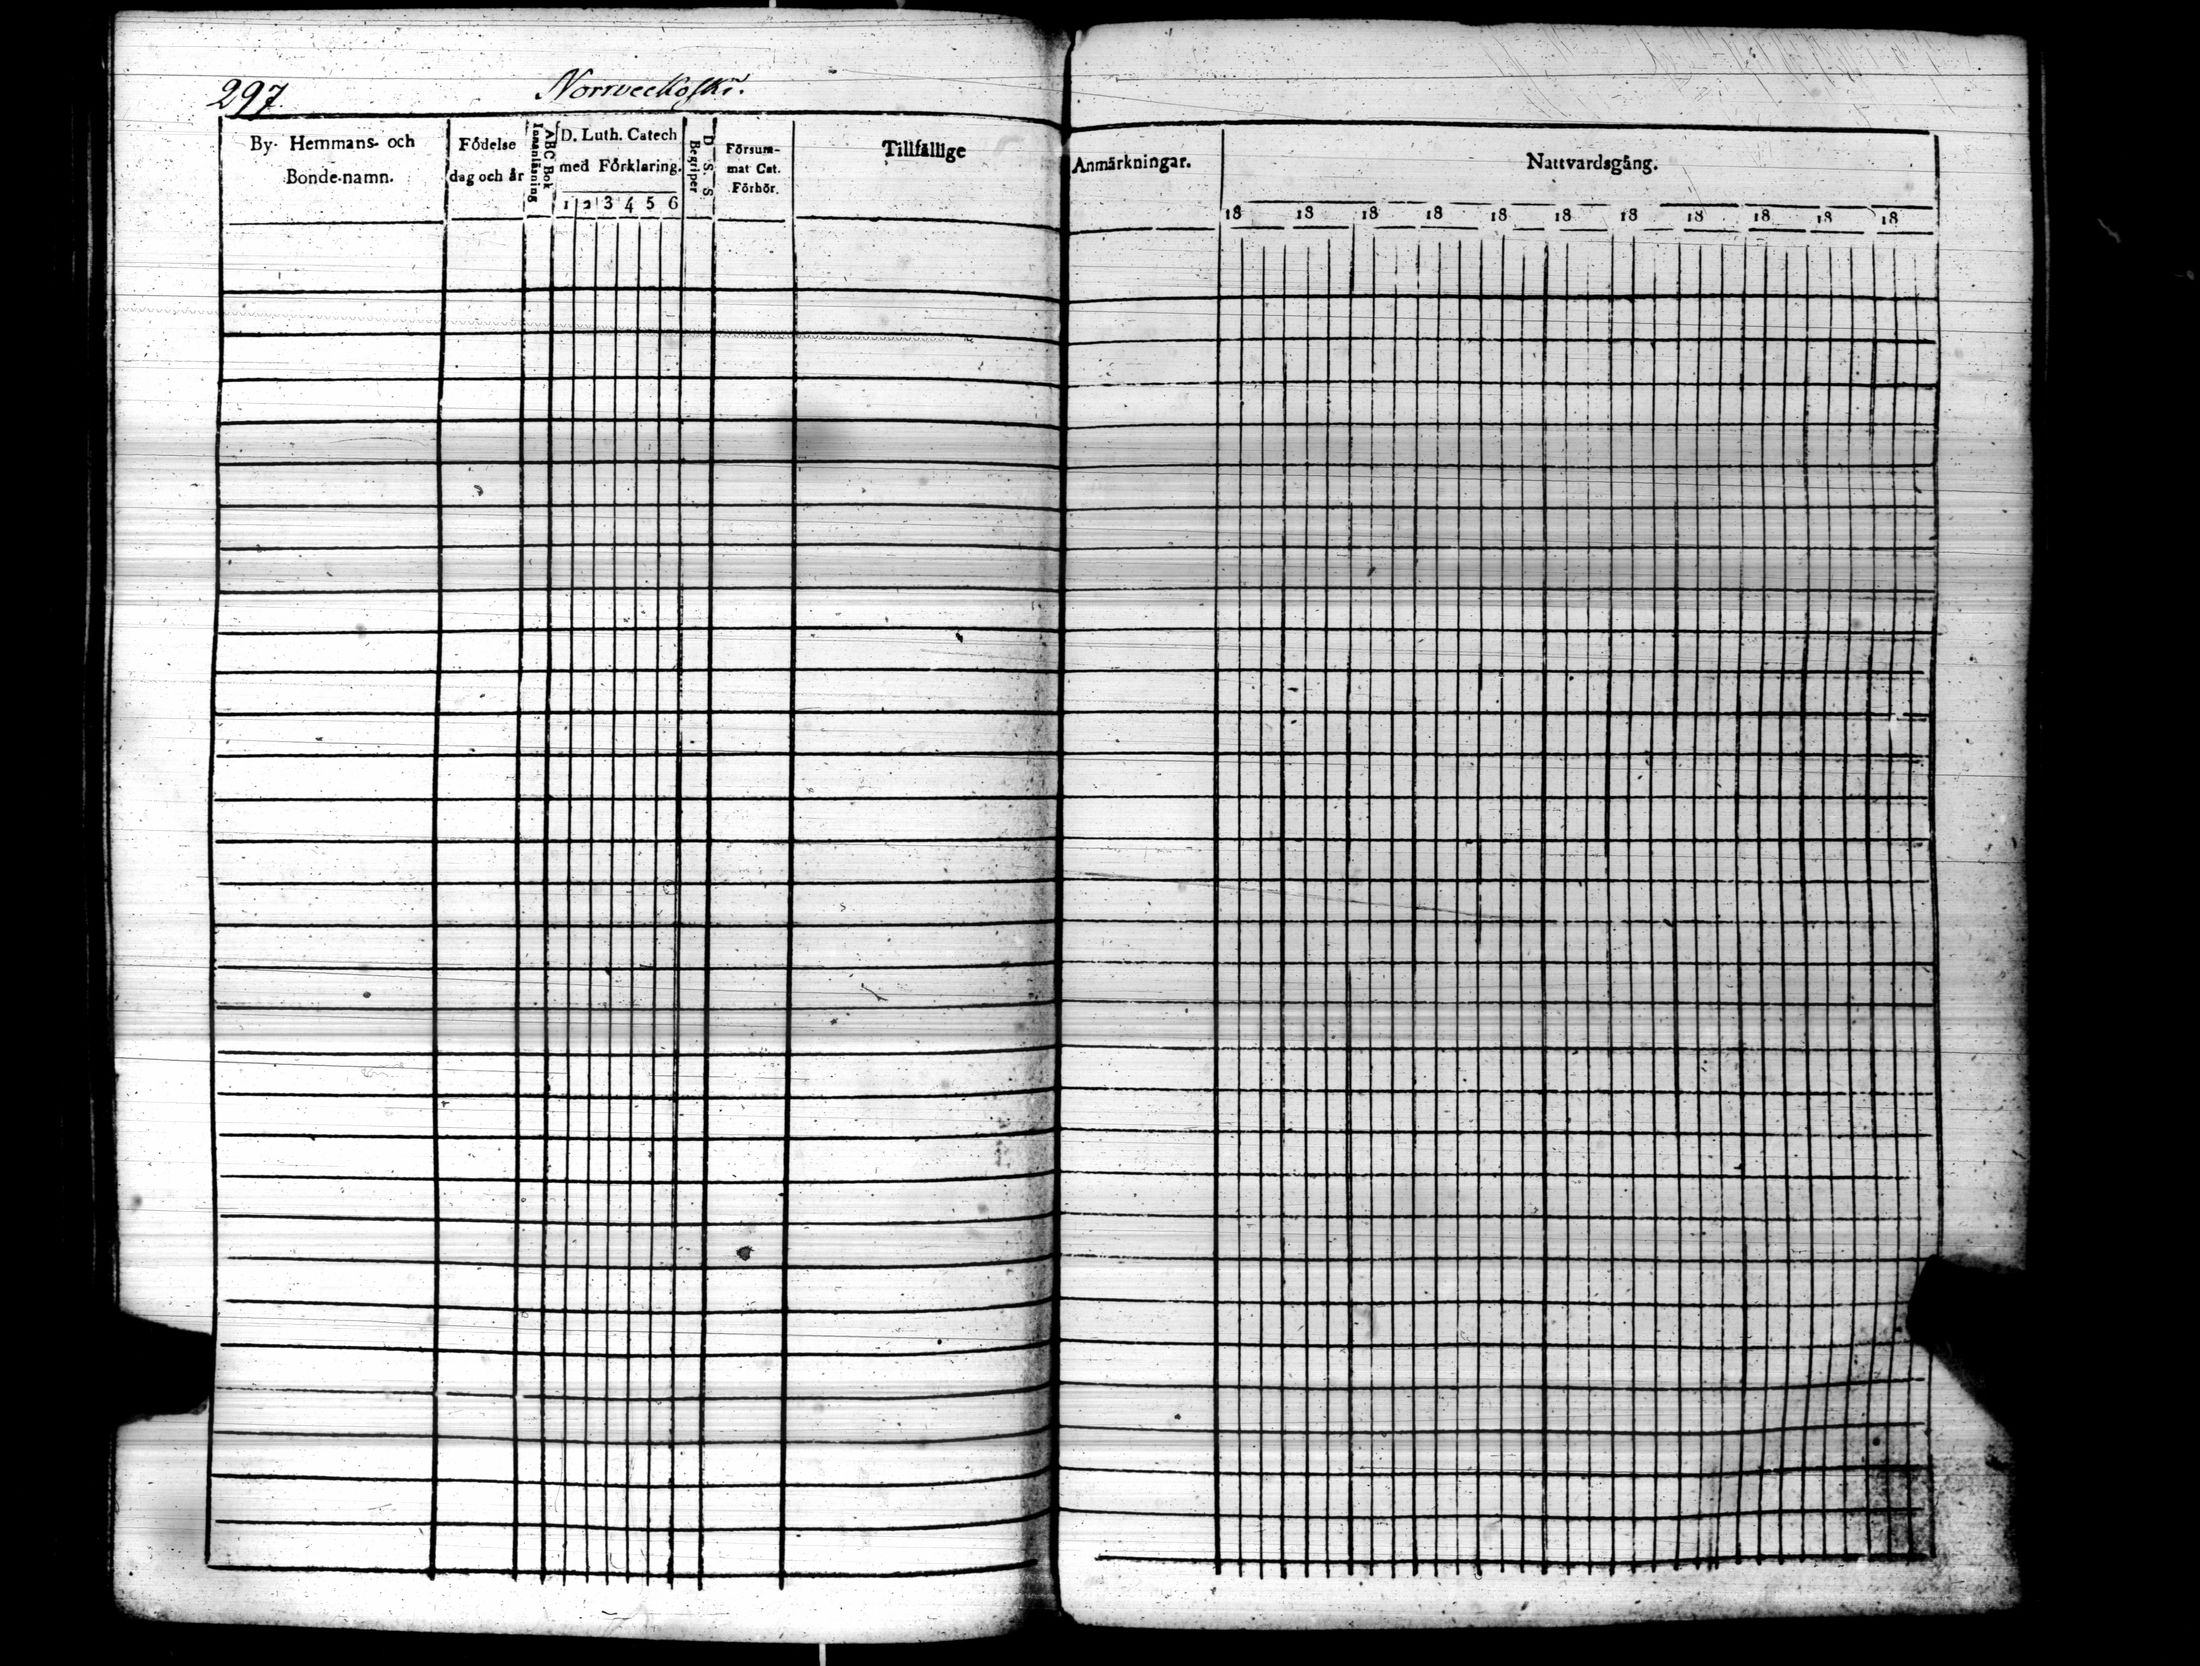 297.
Norrveckoski.
By- Hemmans- och
Bonde-namn.
Födelse
dag och år
Innanläsning
ABC Bok
D. Luth. Catech
med Förklaring.
1 2 3 4 5 6
Begriper
D. S. S
Försum-
mat Cat.
Förhör.
Tillfällige
Anmärkningar.
Nattvardsgång.
18 18 18 18 18 18 18 18 18 18 18